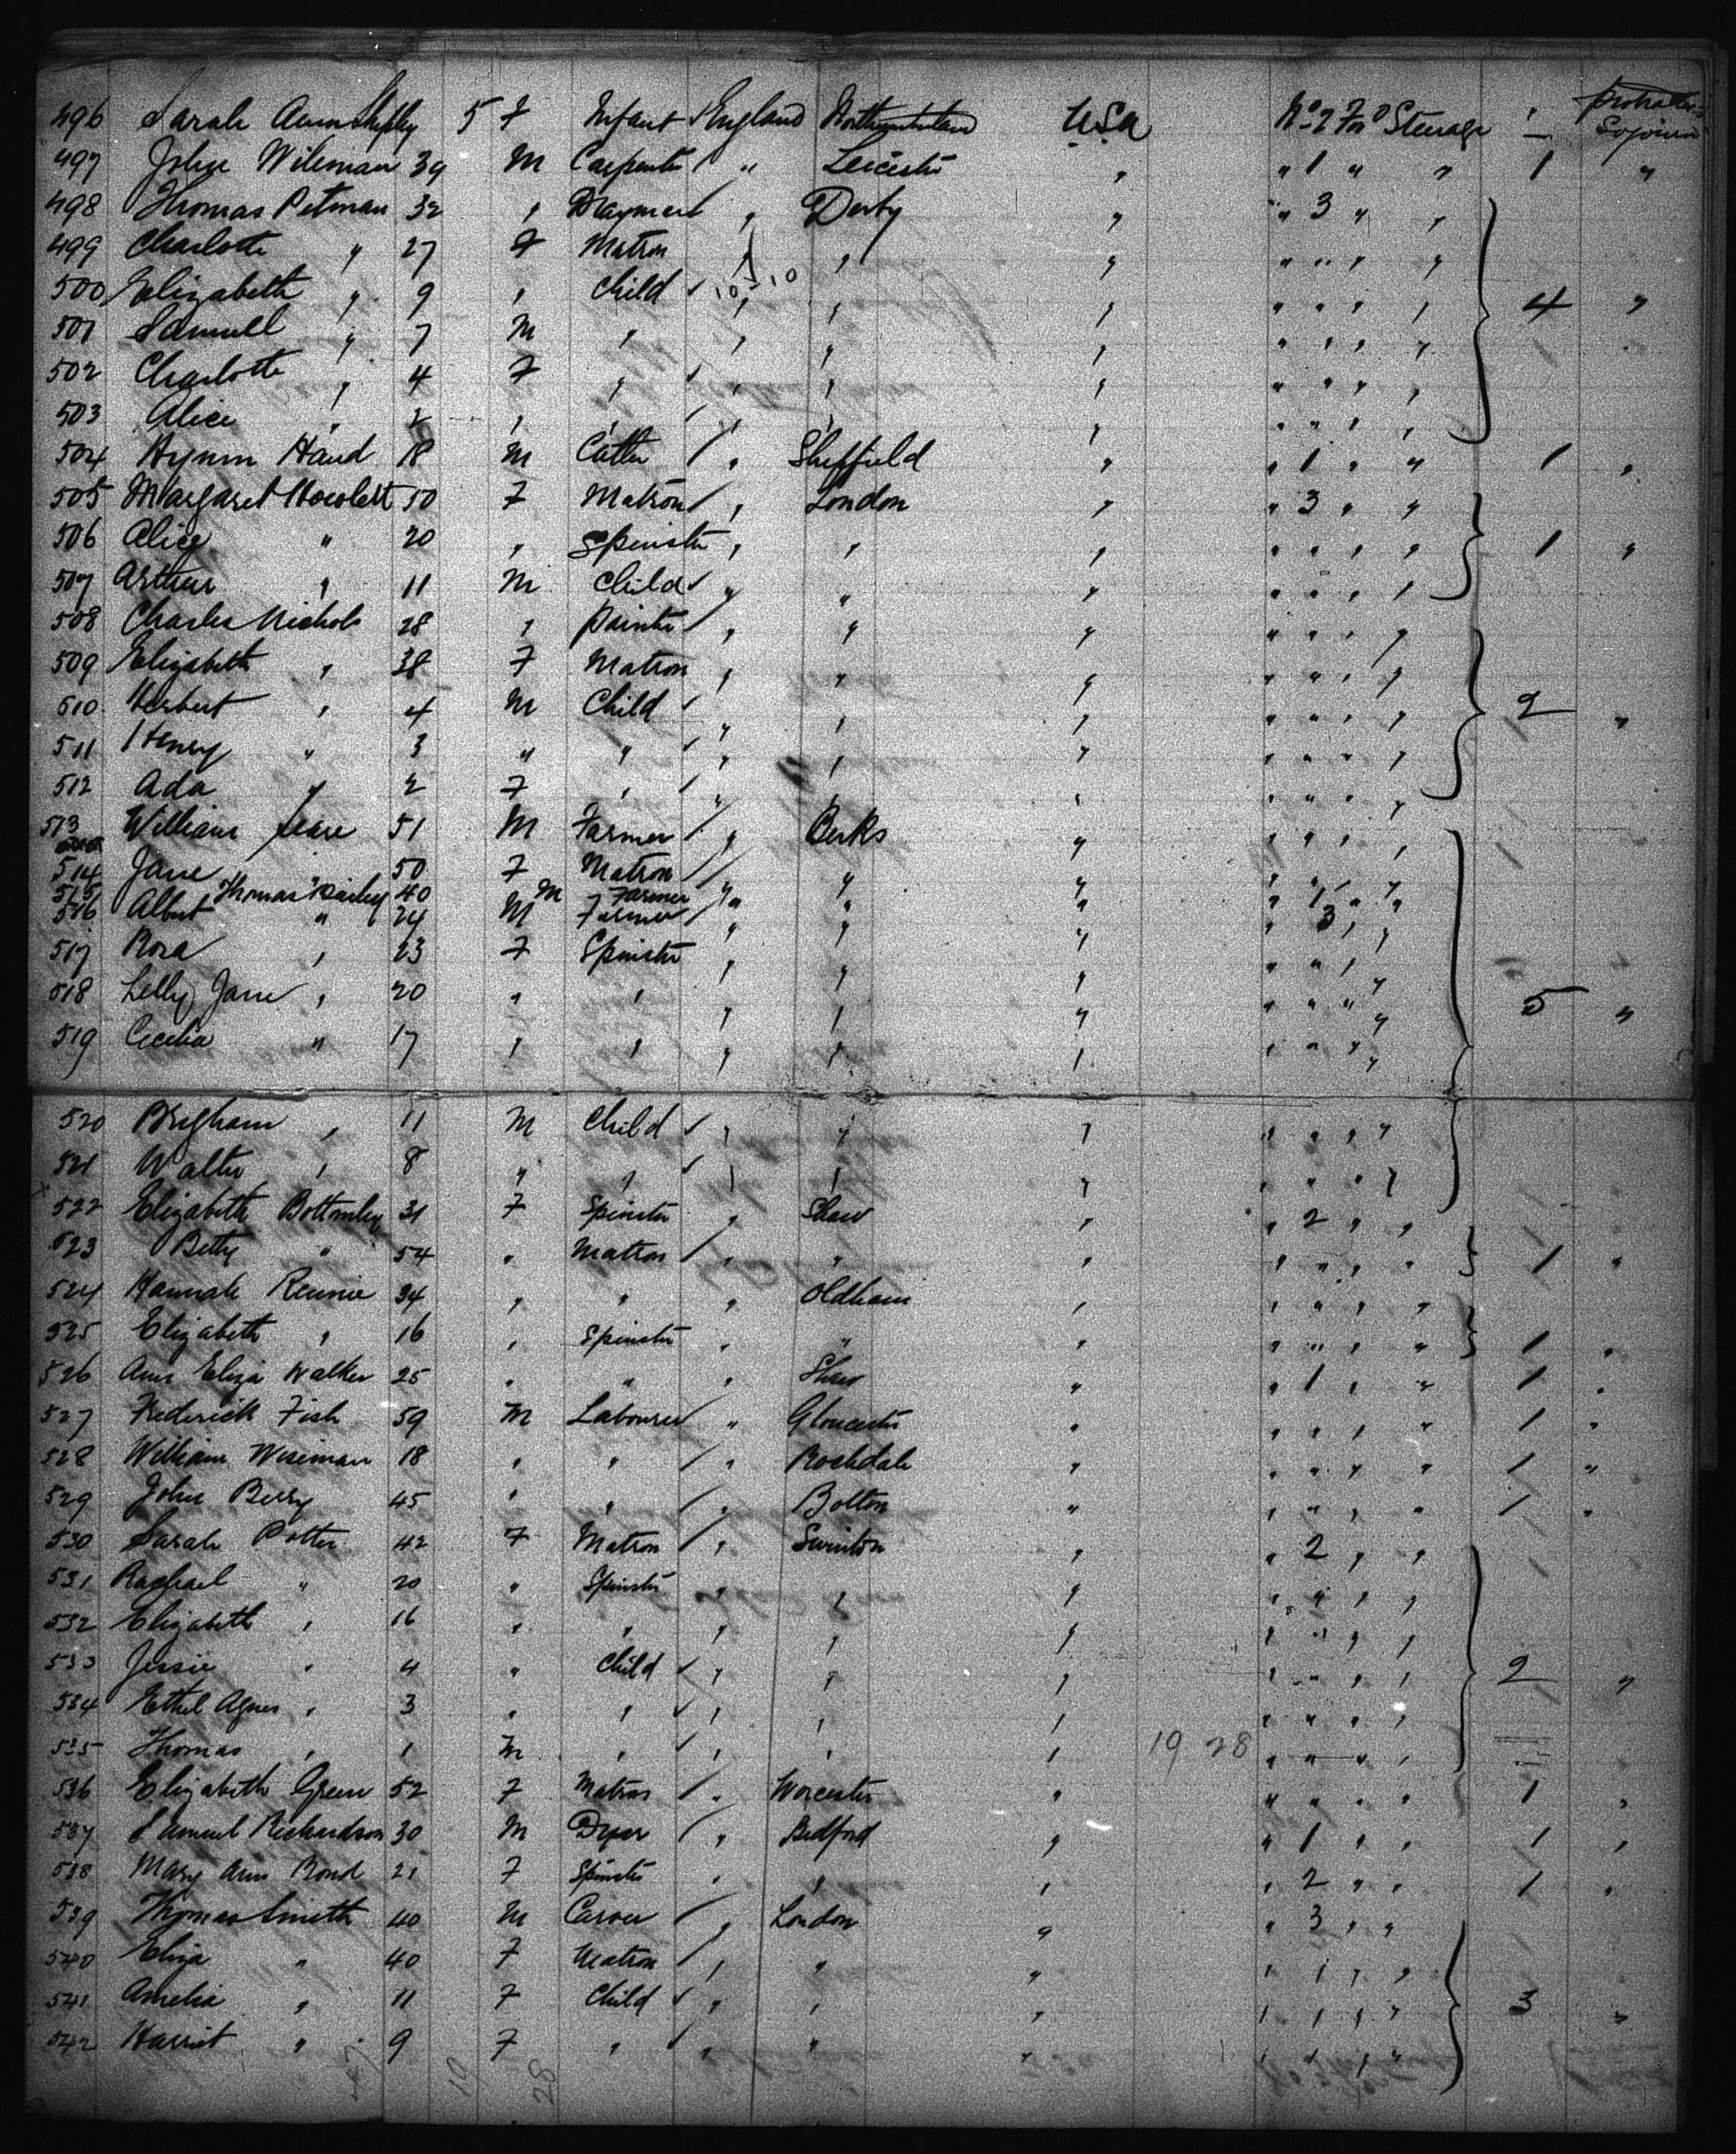 496 Sarah Ann 5 F Infant England Northumberland USA No 2 Ford Steerage - Protracted Sojourn
497 John Wileman 39 M Carpenter " Leicester " " 1 " " 1 "
498 Thomas Petman 32 " Drayman " Derby " " 3 " "
499 Charlotte " 27 F Matron " " " " " " "
500 Elizabeth " 9 " Child " " " " " " " 4 "
501 Samuell " 7 M " " " " " " " "
502 Charlotte " 4 F " " " " " " " "
503 Alice " 2 " " " " " " " " "
504 Hyrum Hand 18 M Cutler " Sheffield " " 1 " " 1 "
505 Margaret Howlett 50 F Matron " London " " 3 " "
506 Alice " 20 " Spinster " " " " " " " 1 "
507 Arthur " 11 M Child " " " " " " "
508 Charles Nichols 28 " Painter " " " " " " "
509 Elizabeth " 38 F Matron " " " " " " "
510 Herbert " 4 M Child " " " " " " " 2 "
511 Henry " 3 " " " " " " " " "
512 Ada " 2 F " " " " " " " "
513 William 51 M Farmer " Berks " " " " "
514 Jane 50 F Matron " " " " " " "
515 Thomas Bailey 40 M Farmer " " " " 1 " "
516 Albert " 24 M Farmer " " " " 3 " "
517 Rosa " 23 F Spinster " " " " " " "
518 Lelly Jane " 20 " " " " " " " " " 5 "
519 Cecelia " 17 " " " " " " " " "
520 Brigham " 11 M Child " " " " " " "
521 Walter " 8 " " " " " " " " "
522 Elizabeth Bottomley 31 F Spinster " Shaw " " 2 " "
523 Betty " 54 " Matron " " " " " " " 1 "
524 Hannah Rennie 34 " " " Oldham " " " " "
525 Elizabeth " 16 " Spinster " " " " " " " 1 "
526 Ann Eliza Walker 25 " " " Shaw " " 1 " " 1 "
527 Frederick Fish 59 M Labourer " Gloucester " " " " " 1 "
528 William Wiseman 18 " " " Rochdale " " " " " 1 "
529 John Berry 45 " " " Bolton " " " " " 1 "
530 Sarah Potter 42 F Matron " Swinton " " 2 " "
531 Rachael " 20 " Spinster " " " " " " "
532 Elizabeth " 16 " " " " " " " " "
533 Jessie " 4 " Child " " " " " " " 2 "
534 Ethel Agnes " 3 " " " " " " " " "
535 Thomas " 1 M " " " " 19 28 " " " "
536 Elizabeth Green 52 F Matron " Worcester " " " " " 1 "
537 Samuel Richardson 30 M Dyer " Bedford " " 1 " " 1 "
538 Mary Ann Bond 21 F Spinster " " " " 2 " " 1 "
539 Thomas Smith 40 M Carver " London " " 3 " "
540 Eliza " 40 F Matron " " " " " " "
541 Amelia " 11 F Child " " " " " " " 3 "
542 Harriet " 9 F " " " " " " " "
19 28